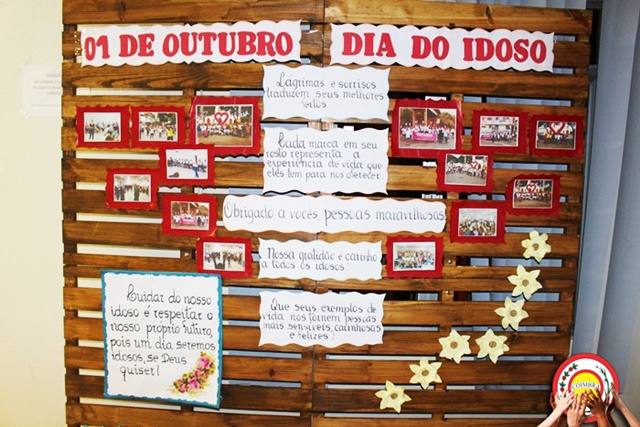 01 DE OUTUBRO
DIA DO IDOSO
Lágrimas e sorrisos
traduzem seus melhores
Cada marca em seu
rosto representa a
experiência de vida que
eles tem para nos oferecer.
Obrigado a vocês, pessoas maravilhosas!
Nossa gratidão e carinho
a todos os idosos!
Que seus exemplos de
vida nos tornem pessoas
mais sensíveis, carinhosas
e felizes!
Cuidar do nosso
idoso é respeitar o
nosso próprio futuro,
pois um dia seremos
idosos, se Deus
quiser!
COIMBRA